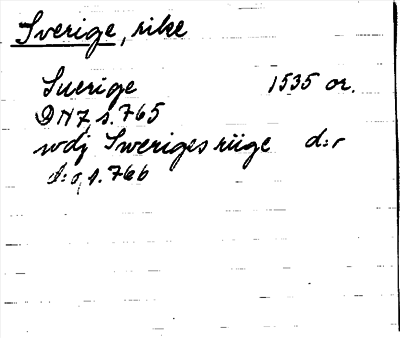 Sverige, rike
Suerige 1535 or.
DN7 s. 765
wdj Sweriges riige d:o
d:o, s. 766